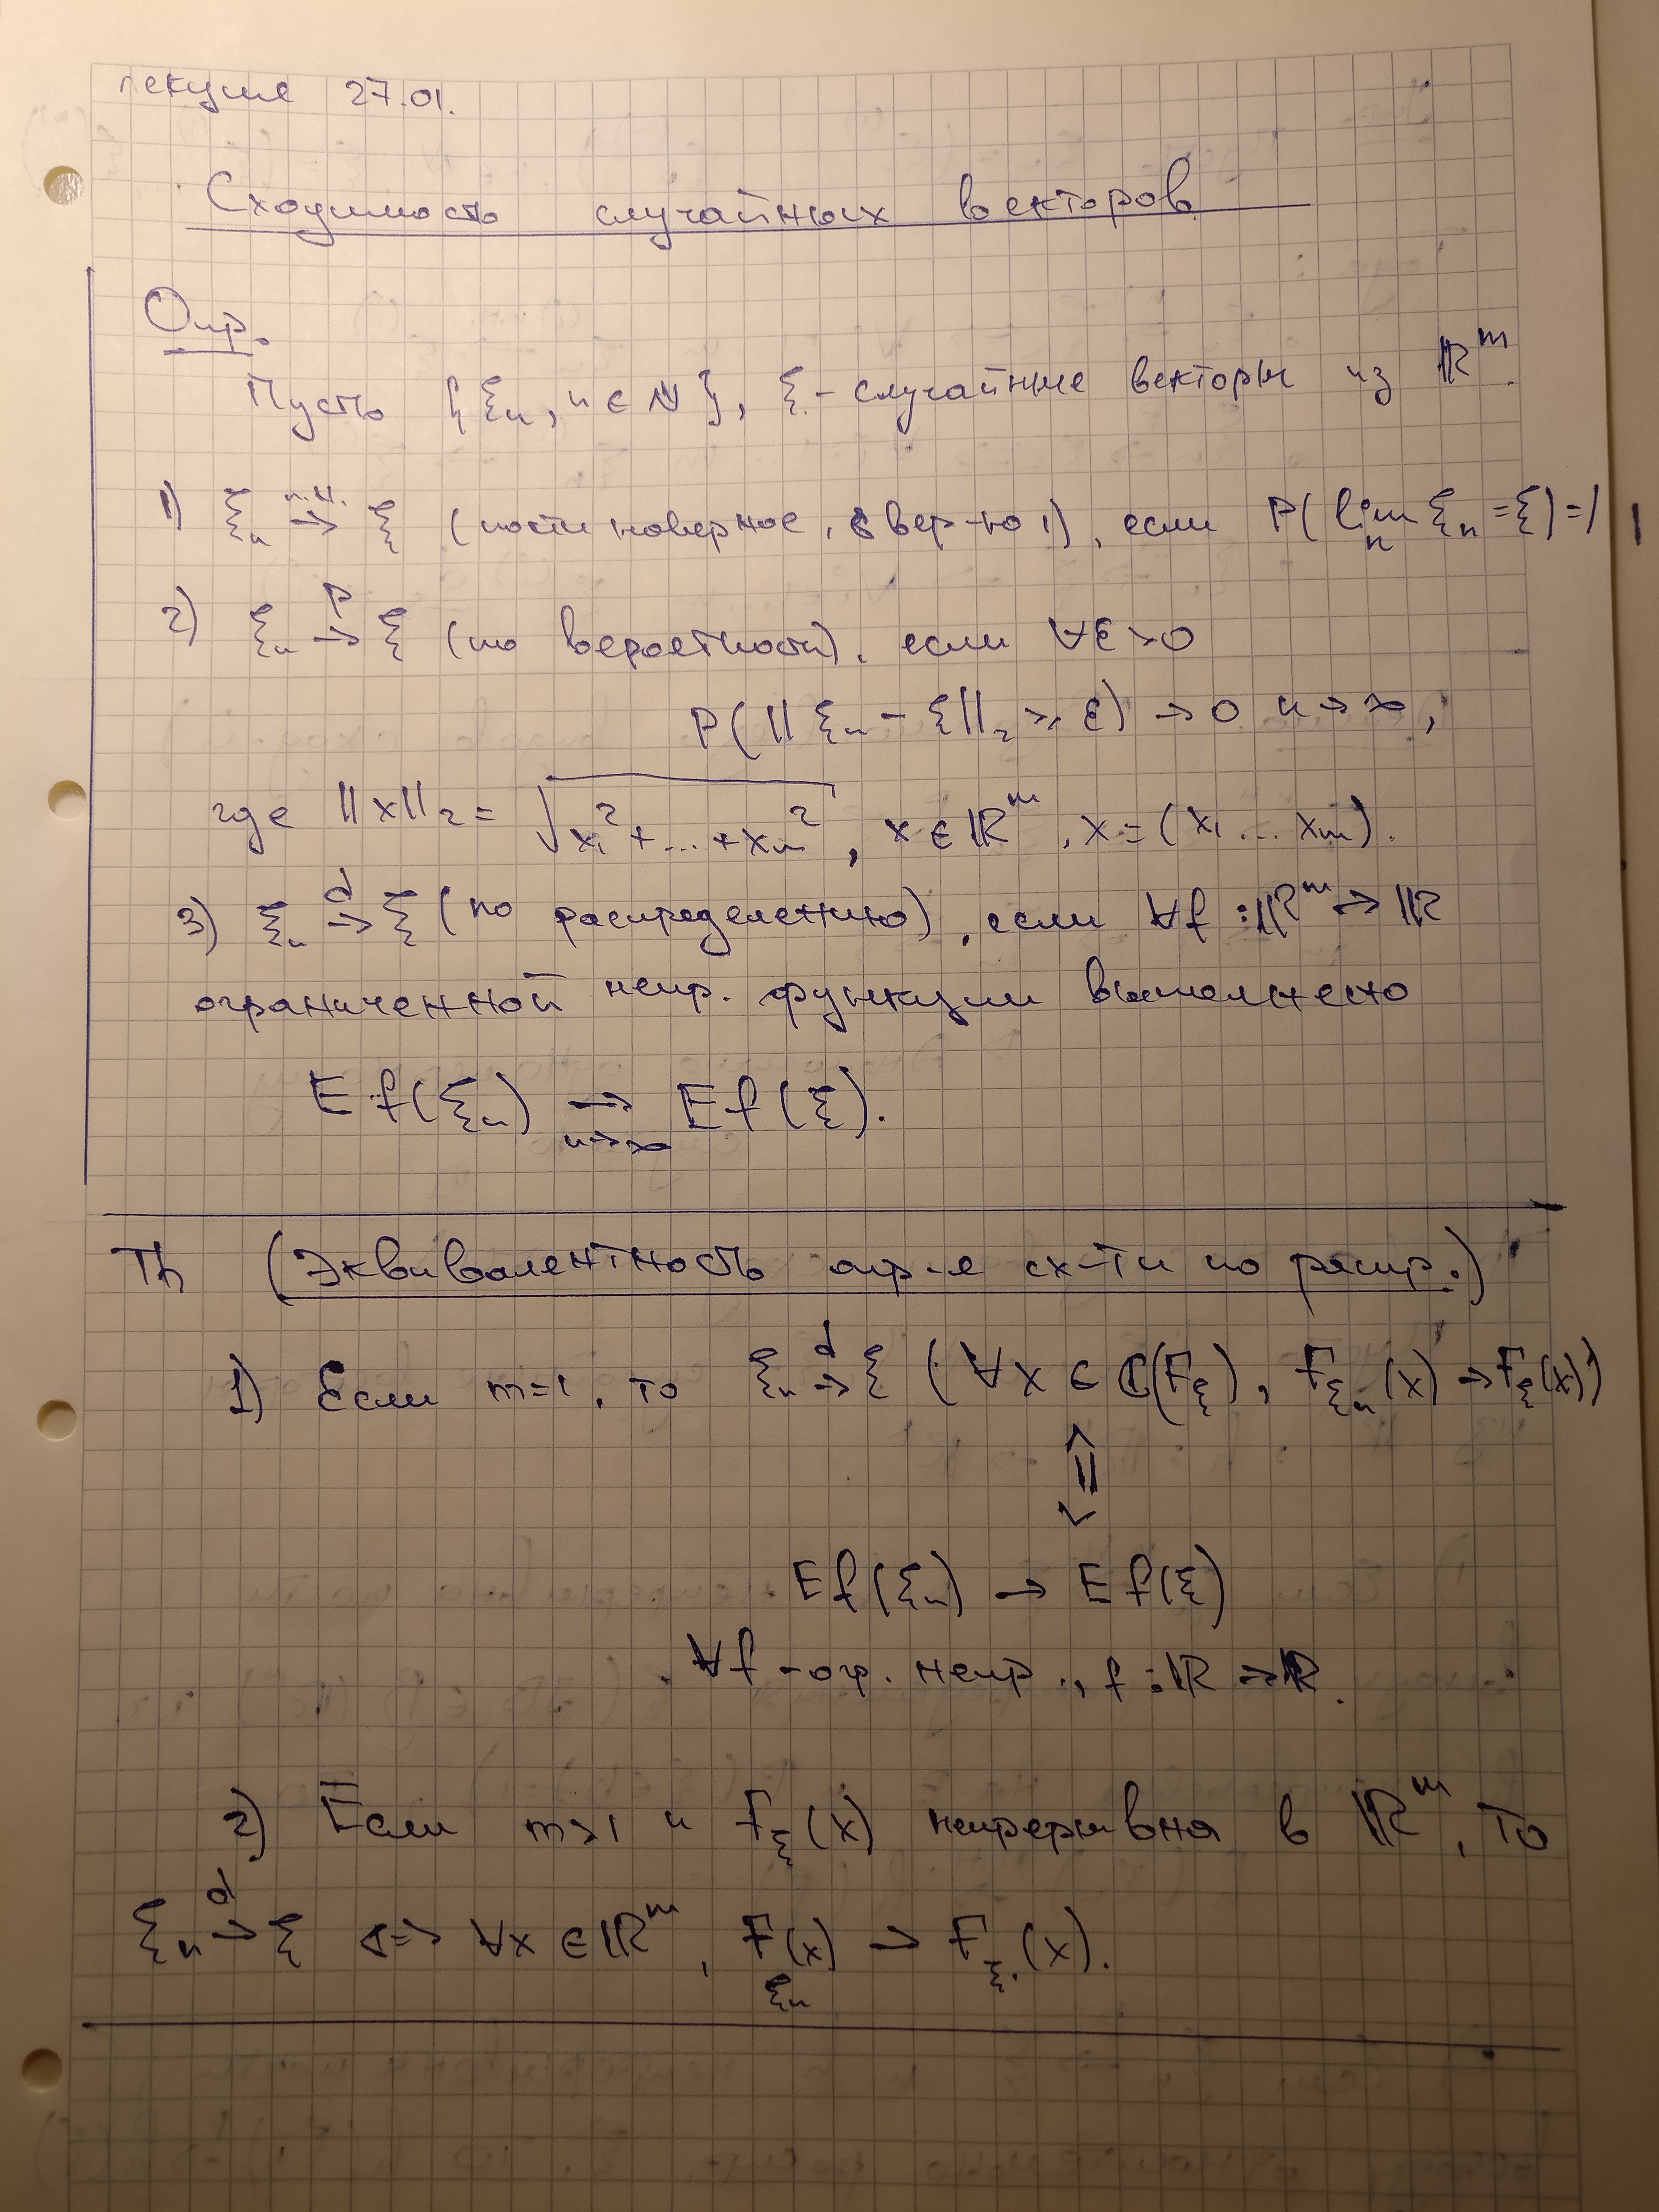 лекция 27.01.
Сходимость случайных векторов
Опр.
Пусть {ξₙ, n ∈ ℕ}, ξ - случайные векторы из ℝᵐ.
1) ξₙ →ᵖ·ᴴ· ξ (почти наверное, с вер-ю 1), если P(lim ξₙ = ξ) = 1
n
2) ξₙ →ᴾ ξ (по вероятности), если ∀ε > 0
P(‖ξₙ - ξ‖₂ ⩾ ε) → 0 n → ∞,
где ‖x‖₂ = √(x₁² + ... + xₘ²), x ∈ ℝᵐ, x = (x₁ ... xₘ).
3) ξₙ →ᵈ ξ (по распределению), если ∀f : ℝᵐ → ℝ
ограниченной непр. функции выполнено
E f(ξₙ) → E f(ξ).
n→∞
Th (Эквивалентность опр-я сх-ти по распр.)
1) Если m=1, то ξₙ →ᵈ ξ (∀x ∈ C(F_ξ), F_ξₙ(x) → F_ξ(x))
⇕
E f(ξₙ) → E f(ξ)
∀f - огр. непр., f : ℝ → ℝ.
2) Если m>1 и F_ξ(x) непрерывна в ℝᵐ, то
ξₙ →ᵈ ξ <=> ∀x ∈ ℝᵐ, F_ξₙ(x) → F_ξ(x).